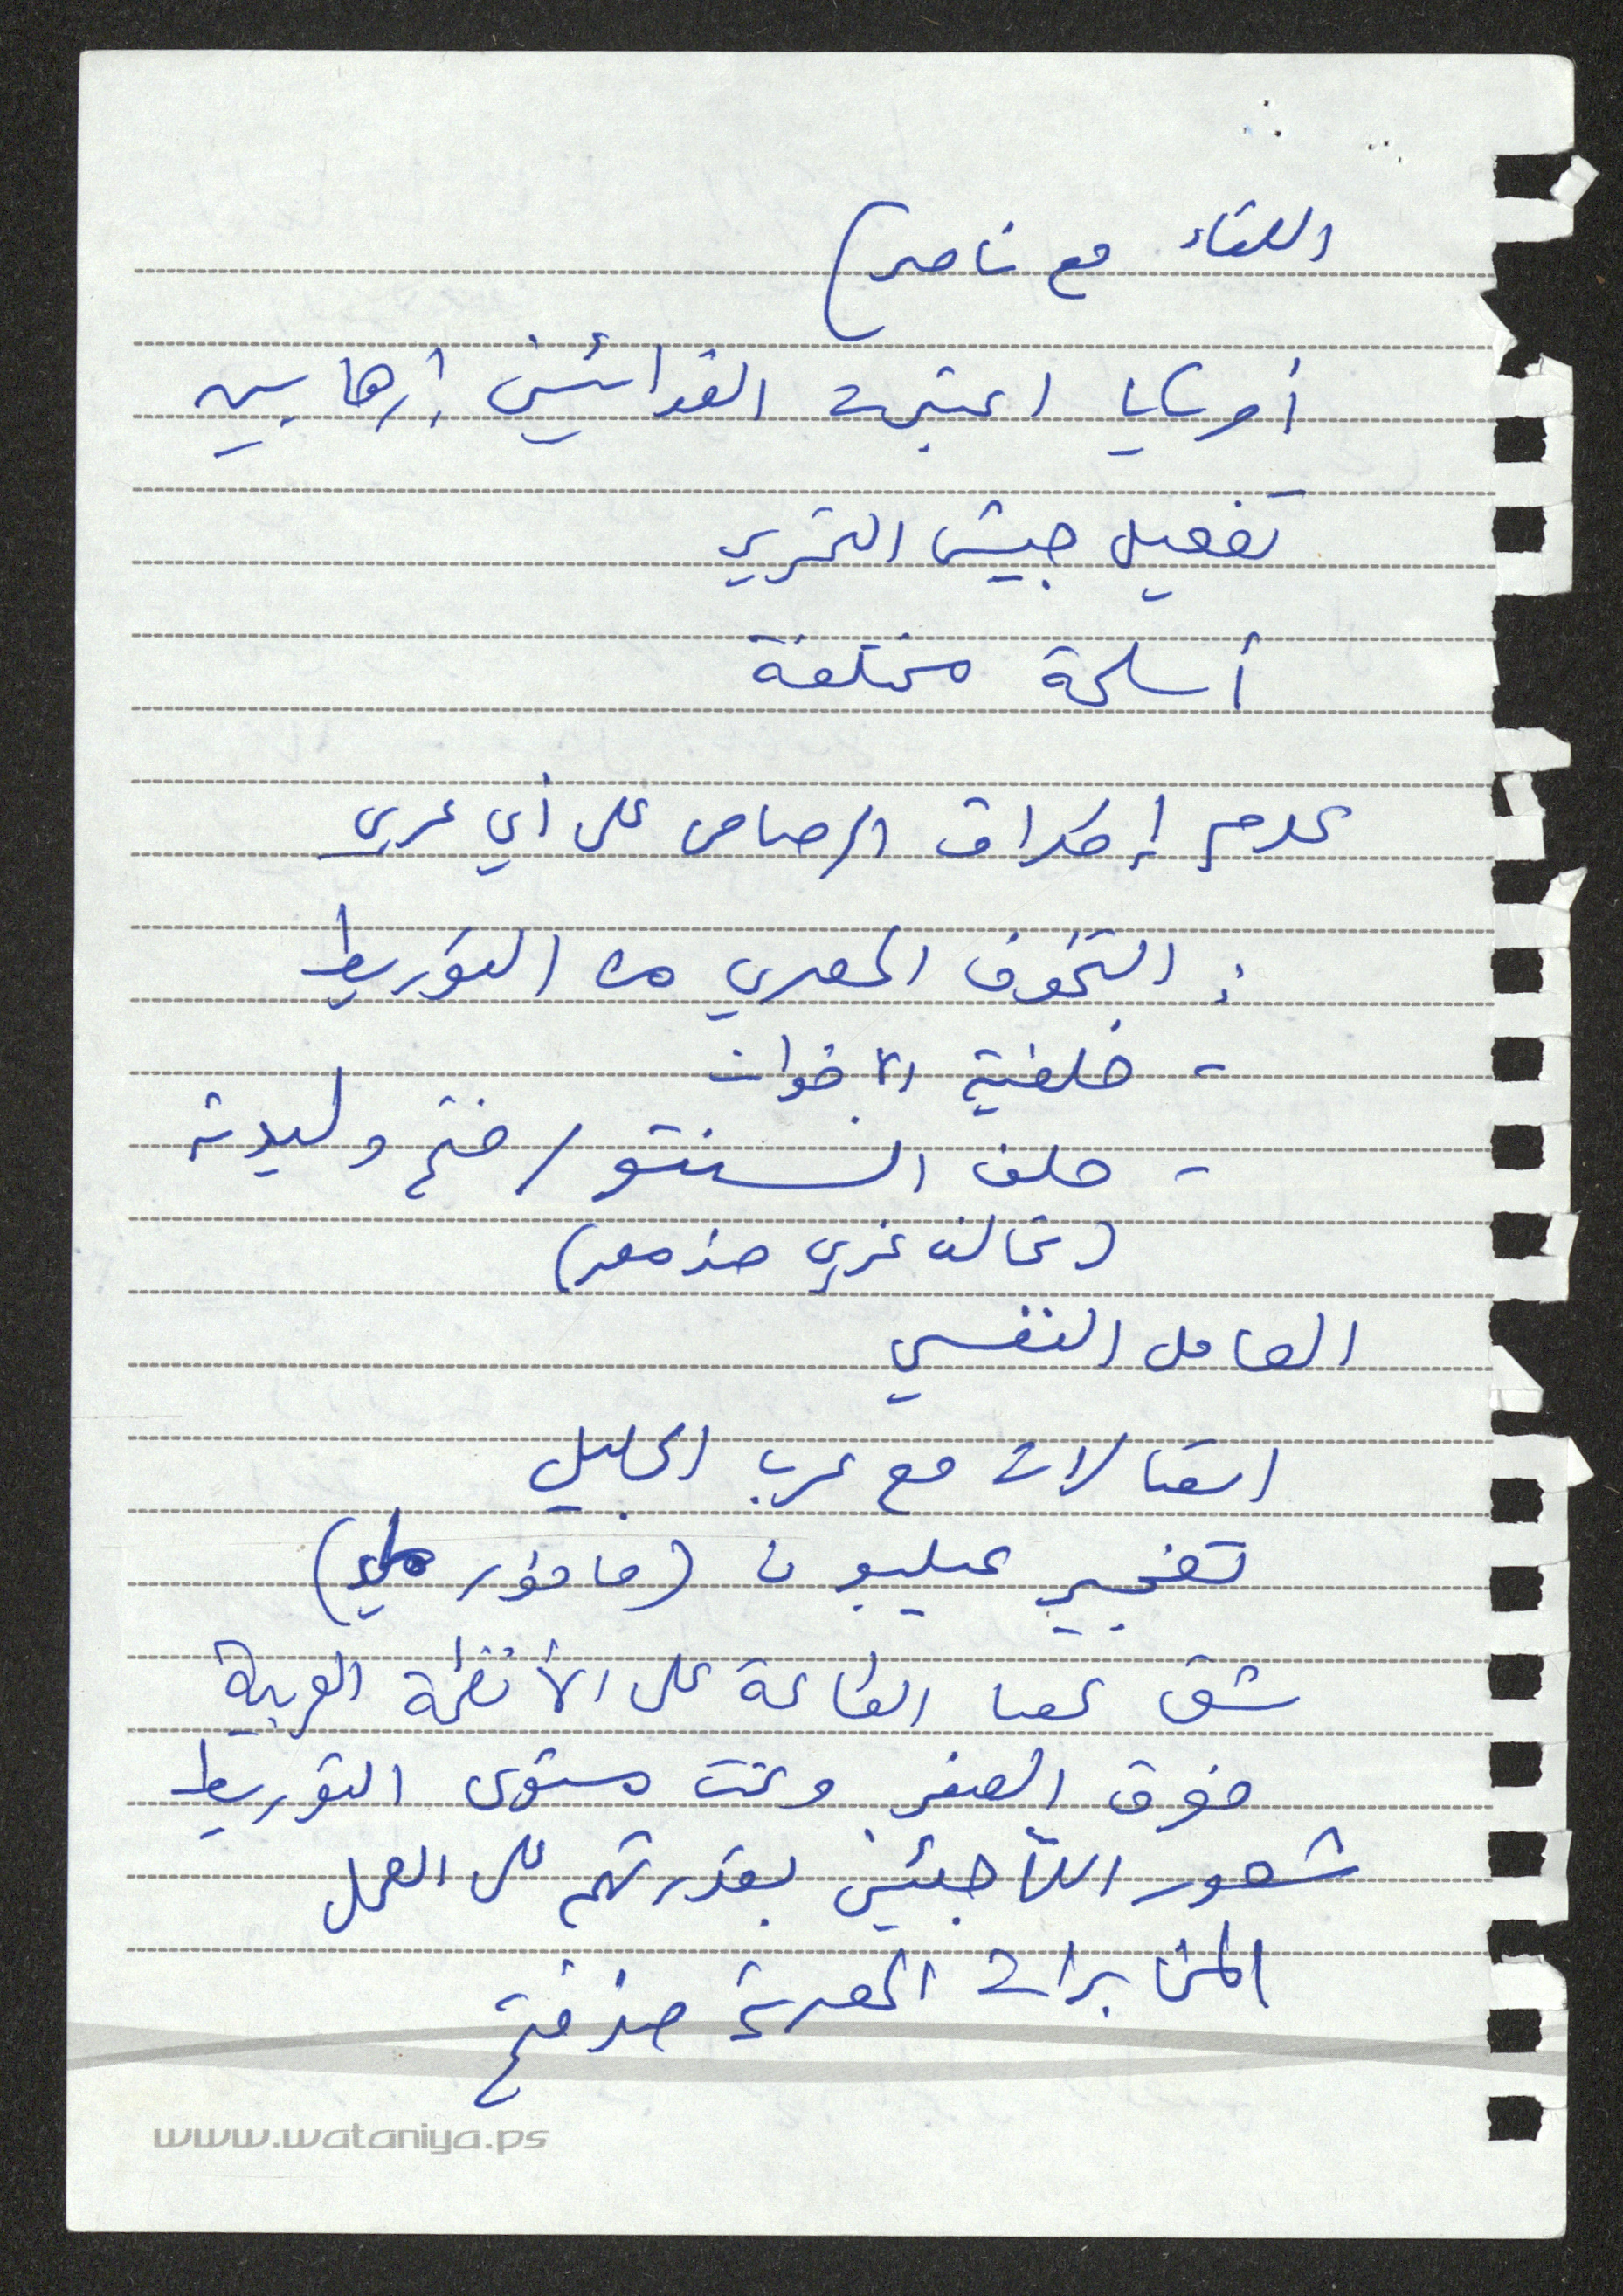 اللقاء مع ناصر)
أمريكا اعتبرت الفدائيين إرهابيين
تفعيل جيش التحرير
أسلحة مختلفة
عدم إطلاق الرصاص على أي عربي
: التخوف المصري من التوريط
- خلفية الاخوان
- حلف السنتو / فتح وليدته
(تحالف غربي ضد مصر)
العامل النفسي
اتصالات مع عرب الجليل
تفجير عيلبون (
شق عصا الطاعة على الأنظمة العربية
فوق الصفر وتحت مستوى التوريط
شعور اللاجئين بقدرتهم على العمل
المخابرات المصرية ضد فتح
www.wataniya.ps